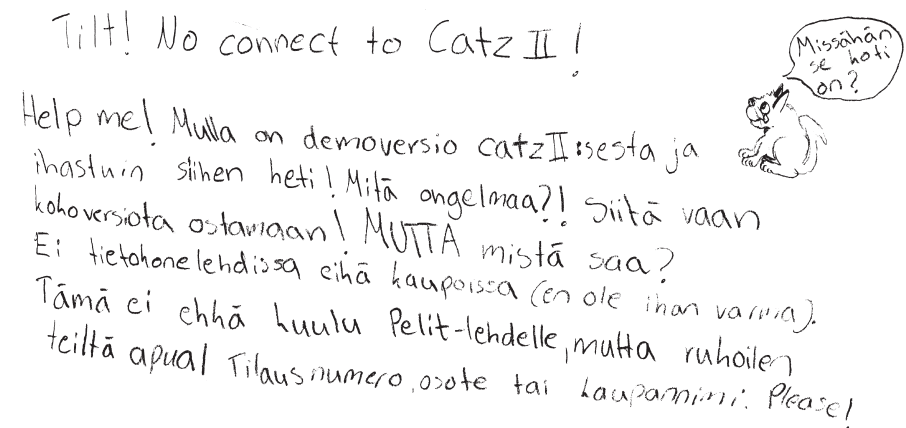 Tilt! No connect to Catz II!
Missähän
se koti
on?
Help me! Mulla on demoversio catz II:sesta ja
ihastuin siihen heti! Mitä ongelmaa?! Siitä vaan
kokoversiota ostamaan! MUTTA mistä saa?
Ei tietokonelehdissä eikä kaupoissa (en ole ihan varma).
Tämä ei ehkä kuulu Pelit-lehdelle, mutta rukoilen
teiltä apua! Tilausnumero, osote tai kaupannimi. Please!